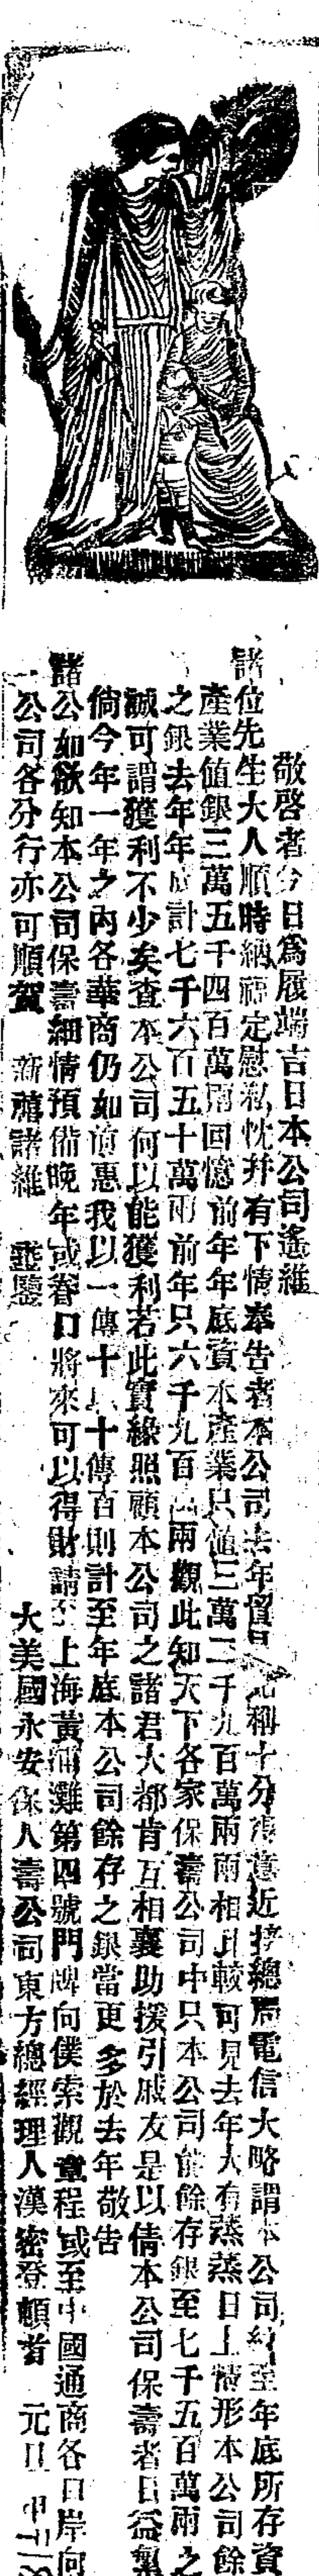 敬啓者今日爲履端吉日本公司遙維
諸位先生大人順時納福定慰私忱并有下情奉告者本公司去年貿易稱十分滿意近接總局電信大略謂本公司至年底所存資
產業值銀三萬五千四百萬兩回憶前年年底資本產業只值三萬二千九百萬兩兩相比較可見去年大有蒸蒸日上情形本公司餘
之銀去年年底計七千六百五十萬兩前年只六千九百兩觀此知天下各家保壽公司中只本公司能餘存銀至七千五百萬兩之
誠可謂獲利不少矣查本公司何以能獲利若此實緣照顧本公司之諸君大都肯互相襄助援引戚友是以倩本公司保壽者日益
倘今年一年之內各華商仍如前惠我以一傳十以十傳百則計至年底本公司餘存之銀當更多於去年敬告
諸公如欲知本公司保壽細情預備晚年或眷口將來可以得財請至上海黃浦灘第四號門牌向僕索觀章程或至中國通商各口岸向
公司各分行亦可順賀 新禧諸維 鑒 大美國永安保人壽公司東方總經理人漢密登頓首 元旦